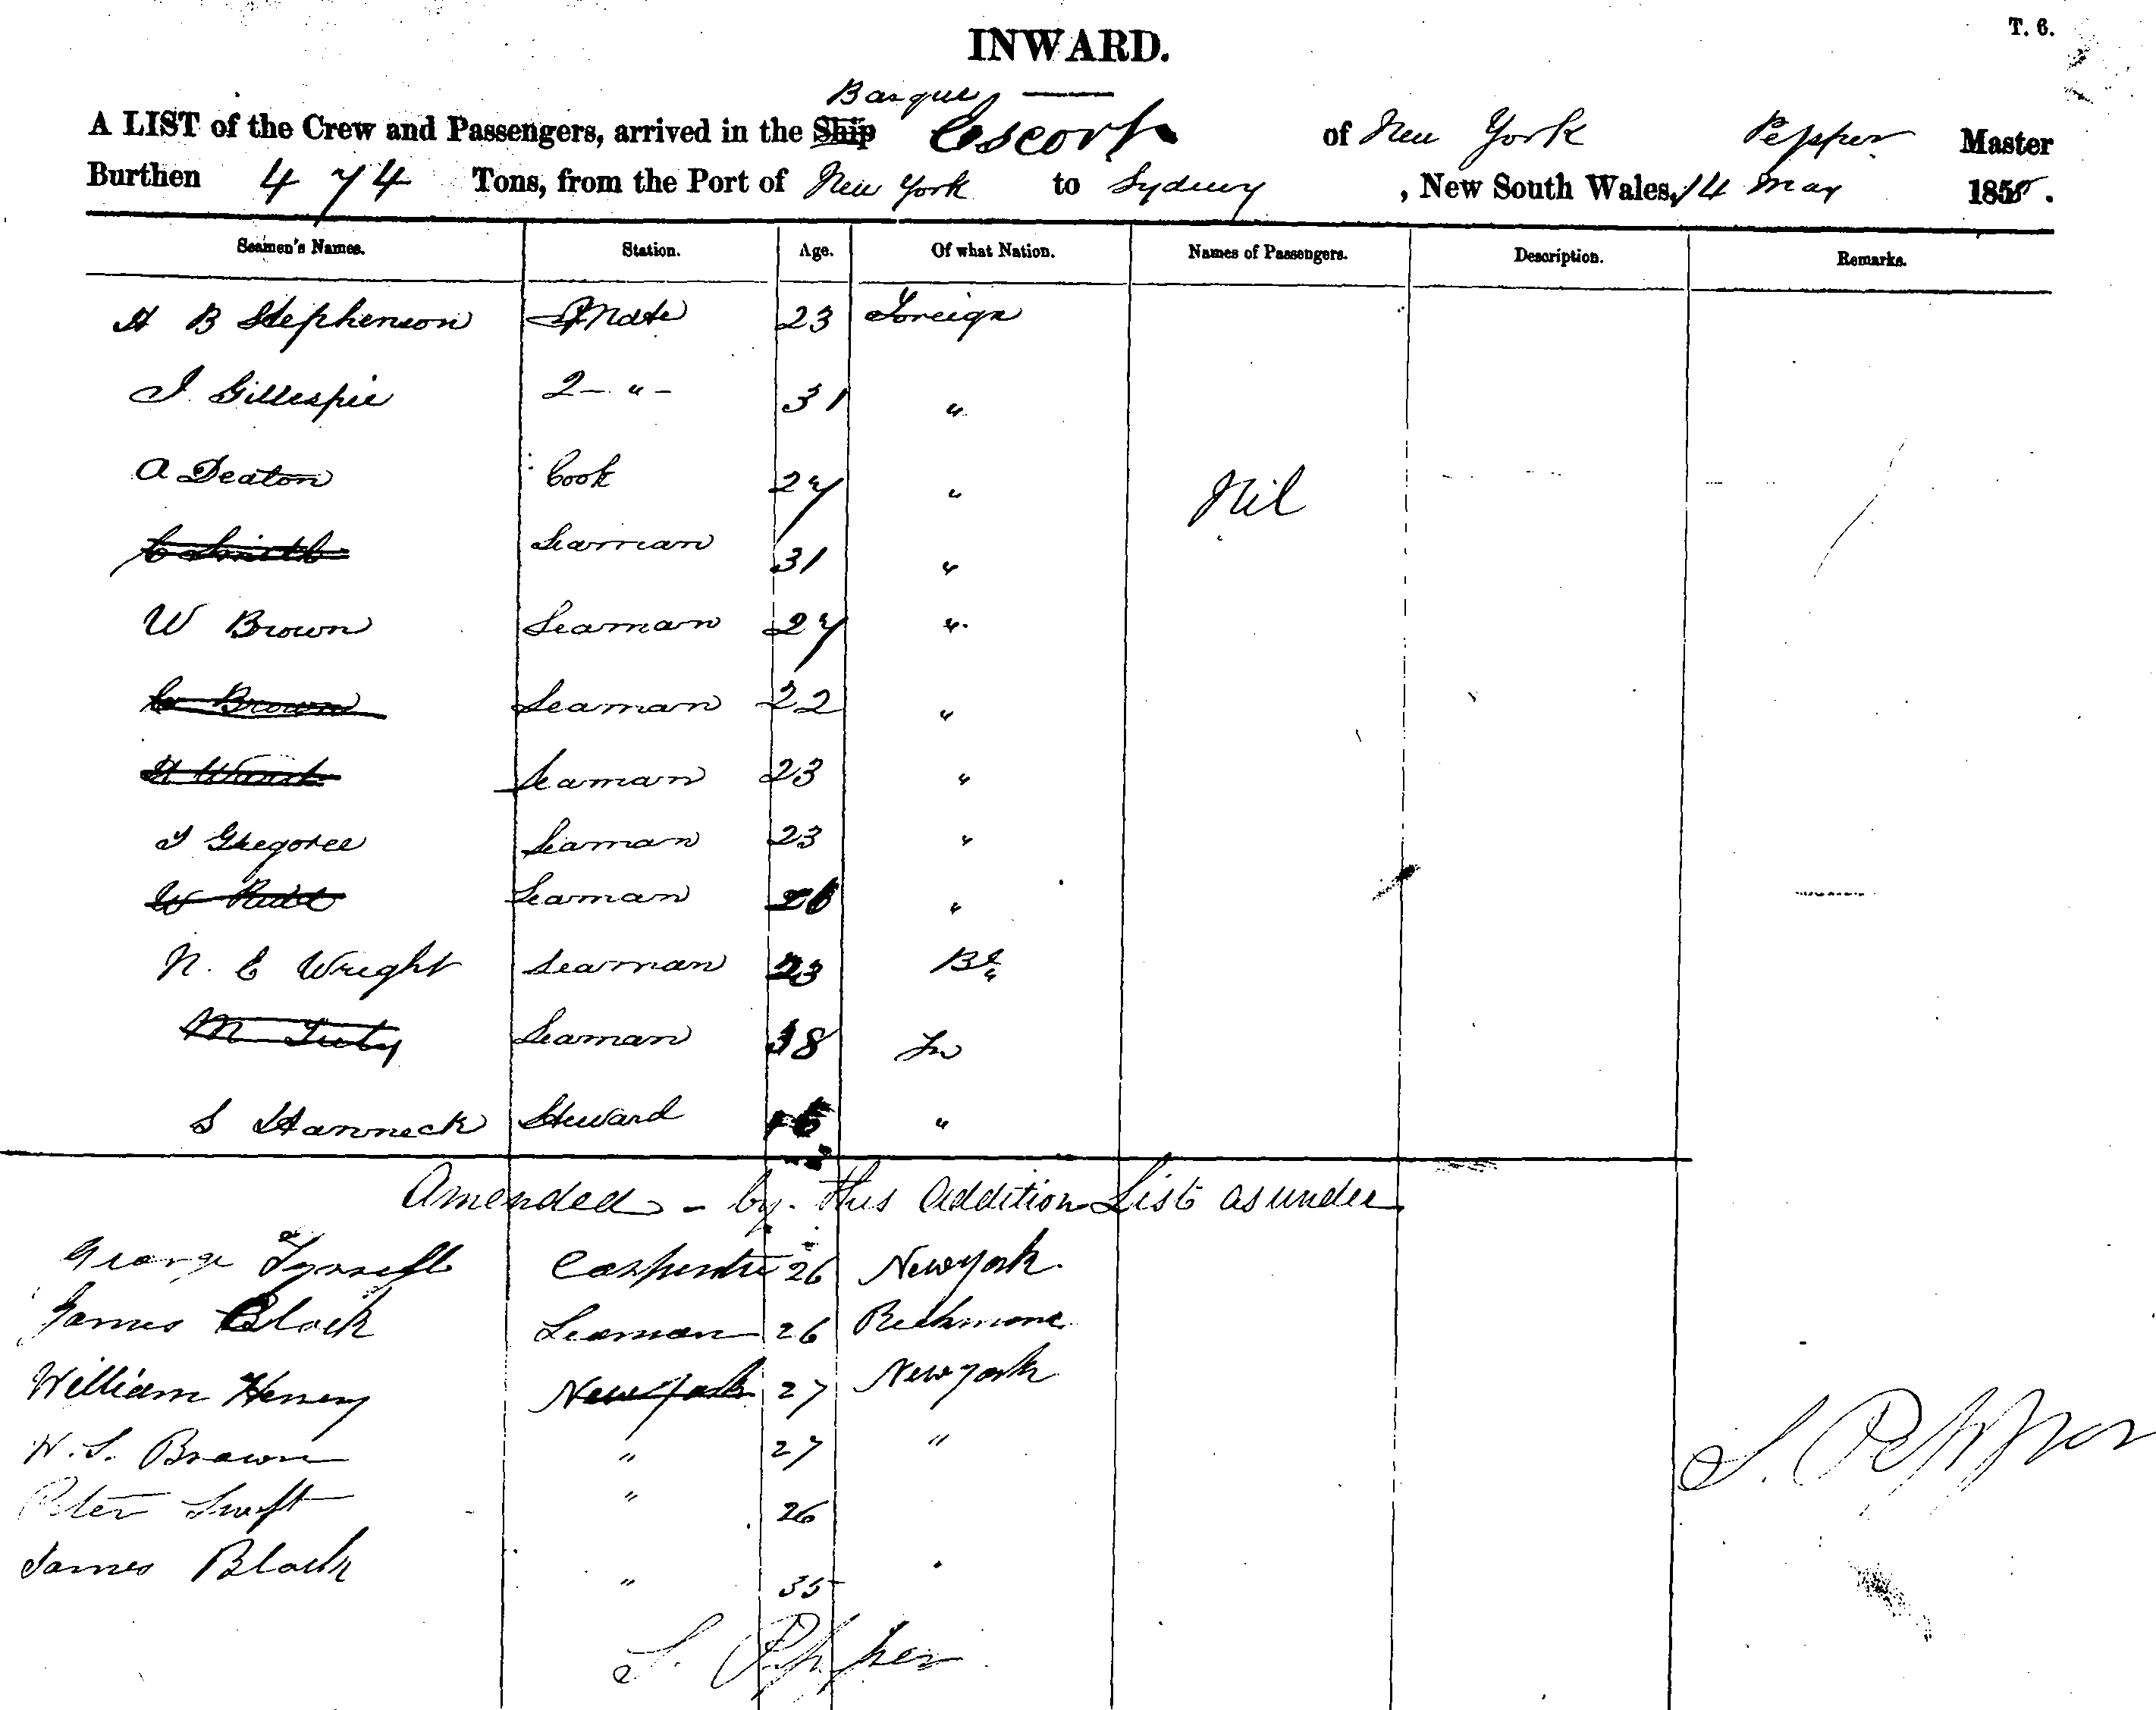 T. 6.
INWARD.
Barque
A LIST of the Crew and Passengers, arrived in the Ship Escort of New York Pepper Master
Burthen 474 Tons, from the Port of New York to Sydney, New South Wales, 14 May 185.
Seamen's Names. Station. Age. Of what Nation. Names of Passengers. Description. Remarks.
H B Stephenson Mate 23 Foreign
J Gillespie 2 - " - 31 "
A Deaton Cook 27 " Nil
C Smith Seaman 31 "
W Brown Seaman 27 "
C Brown Seaman 22 "
H Seaman 23 "
Gregoree Seaman 23 "
W Seaman 26 "
N. E Wright Seaman 23 Bt
M Seaman 38
S Hanneck Steward "
Amended - by this addition List as under
George Carpenter 26 New york.
James Black Seaman 26 Richmond
William Henry New york 27 New york
W. S. Brown " 27 "
Peter Swift " 26
James Black " 35 "
S. Pepper
S. Pepper